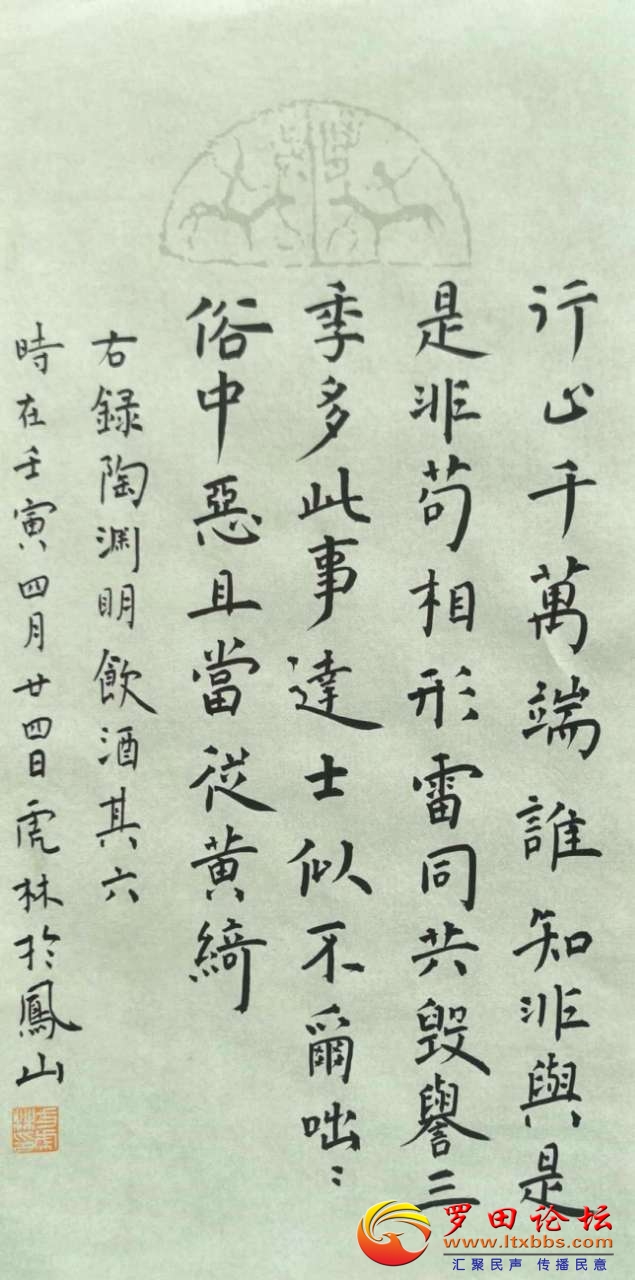 行止千萬端誰知非與是
是非苟相形雷同共毀譽三
季多此事達士似不爾咄〻
俗中惡且當從黃綺
右録陶淵明飲酒其六
時在壬寅四月廿四日虎林於鳳山
罗田论坛
www.ltxbbs.com
汇聚民声 传播民意